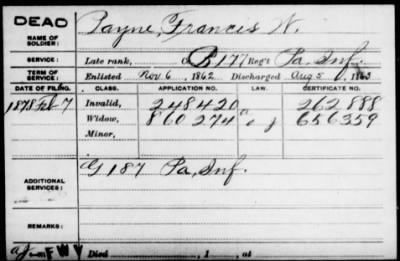 DEAD Payne, Francis W.
NAME OF SOLDIER:
SERVICE: Late rank, B 177 Reg't Pa. Inf.
TERM OF SERVICE: Enlisted Nov. 6, 1862 Discharged Aug 5, 1863
DATE OF FILING. CLASS. APPLICATION NO. LAW. CERTIFICATE NO.
1878 Feb 7 Invalid, 248420 262888
Widow, 860274 656359
Minor,
ADDITIONAL SERVICES: G 187 Pa, Inf.
REMARKS:
F W V Died , 1 , at